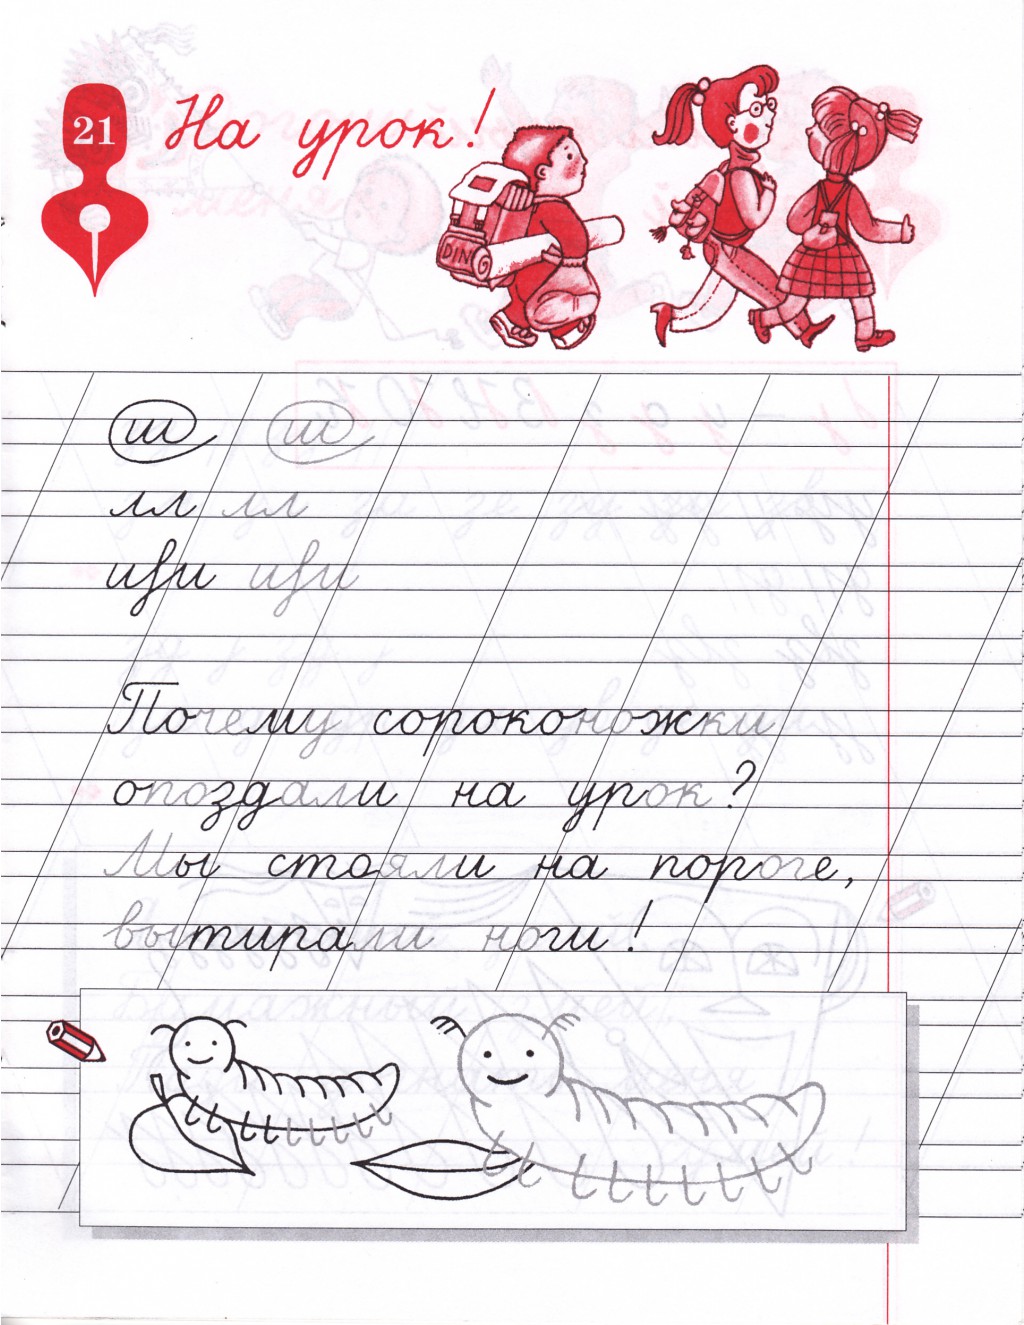 21
На урок!
DING
ш ш
лл лл
иви иви
Почему сороконожки
опоздали на урок?
Мы стояли на пороге,
вытирали ноги!